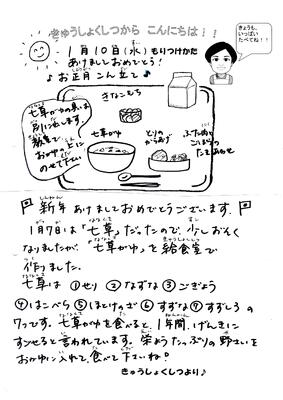 きゅうしょくしつから こんにちは!!
きょうも、
いっぱい
たべてね!!
1月10日(水)もりつけかた
あけましておめでとう!
♪お正月こんだて♪
きなこもち
七草がゆの具は
別に出します。
教室で
おかゆの上に
のせて下さい
七草がゆ
とりの
からあげ
ぶた肉と
ごぼうの
新年あけましておめでとうございます。
1月7日は「七草」だったので、少しおそく
なりましたが、七草がゆを給食室で
作りました。
七草は ①せり ②なずな ③ごぎょう
④はこべら ⑤ほとけのざ ⑥すずな ⑦すずしろ の
7つです。七草がゆを食べると、1年間、げんきに
すごせると言われています。栄ようたっぷりの野さいを
おかゆに入れて、食べて下さいね。
きゅうしょくしつより♪